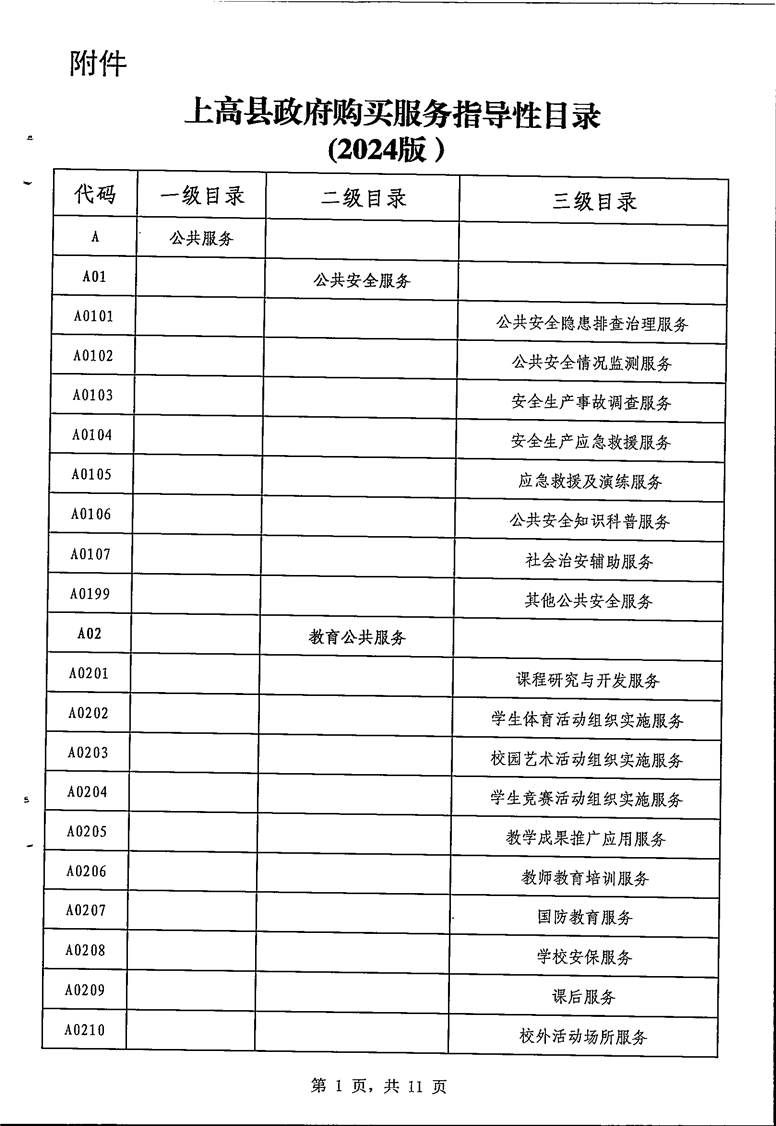 附件
上高县政府购买服务指导性目录
(2024版)
代码 一级目录 二级目录 三级目录
A 公共服务
A01 公共安全服务
A0101 公共安全隐患排查治理服务
A0102 公共安全情况监测服务
A0103 安全生产事故调查服务
A0104 安全生产应急救援服务
A0105 应急救援及演练服务
A0106 公共安全知识科普服务
A0107 社会治安辅助服务
A0199 其他公共安全服务
A02 教育公共服务
A0201 课程研究与开发服务
A0202 学生体育活动组织实施服务
A0203 校园艺术活动组织实施服务
A0204 学生竞赛活动组织实施服务
A0205 教学成果推广应用服务
A0206 教师教育培训服务
A0207 国防教育服务
A0208 学校安保服务
A0209 课后服务
A0210 校外活动场所服务
第 1 页，共 11 页